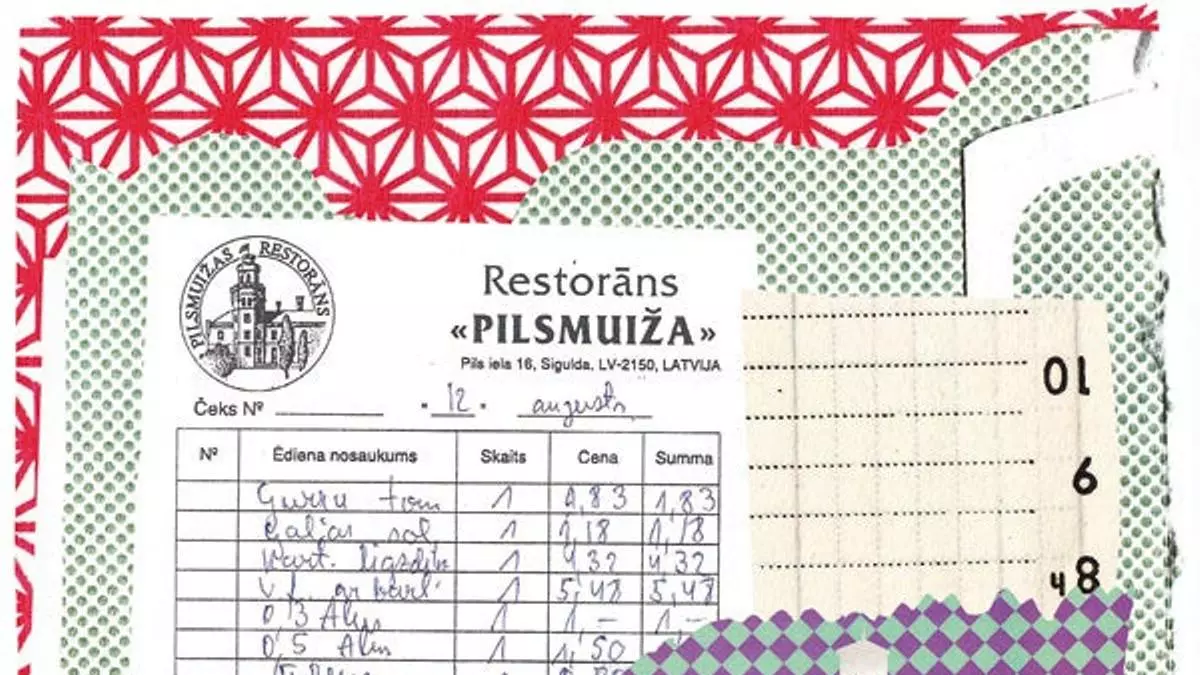 PILSMUIŽAS RESTORĀNS
Restorāns
«PILSMUIŽA»
Pils iela 16, Sigulda, LV-2150, LATVIJA
Čeks Nº ____ "12" augusts
Nº Ēdiena nosaukums Skaits Cena Summa
Gurķu tom 1 1,83 1,83
Gaļas sol. 1 1,18 1,18
Kart. ligzdiņ 1 4,32 4,32
V. f. ar kart. 1 5,48 5,48
0,3 Alus 1 1,- 1,-
0,5 Alus 1 1,50
10
9
8 h